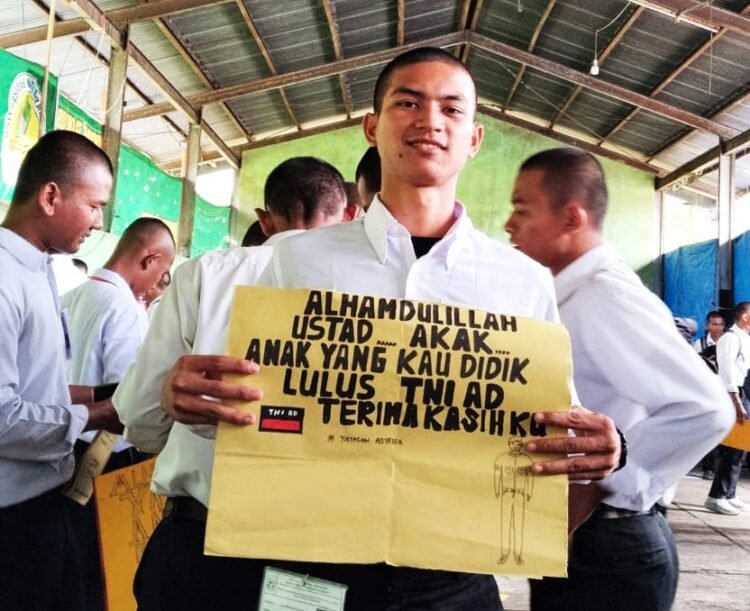 ALHAMDULILLAH
USTAD.... AKAK....
ANAK YANG KAU DIDIK
LULUS TNI AD
TERIMA KASIHKU
TNI AD
# YAYASAN ASYFIFA